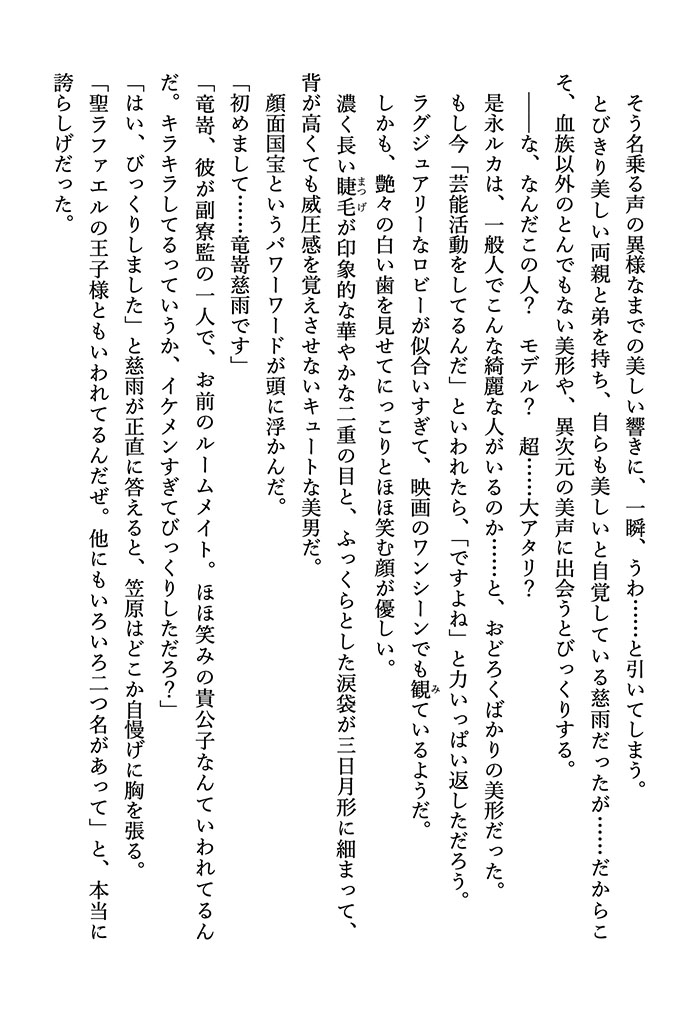 そう名乗る声の異様なまでの美しい響きに、一瞬、うわ……と引いてしまう。
とびきり美しい両親と弟を持ち、自らも美しいと自覚している慈雨だったが……だからこ
そ、血族以外のとんでもない美形や、異次元の美声に出会うとびっくりする。
――な、なんだこの人？　モデル？　超……大アタリ？
是永ルカは、一般人でこんな綺麗な人がいるのか……と、おどろくばかりの美形だった。
もし今「芸能活動をしてるんだ」といわれたら、「ですよね」と力いっぱい返しただろう。
ラグジュアリーなロビーが似合いすぎて、映画のワンシーンでも観ているようだ。
しかも、艶々の白い歯を見せてにっこりとほほ笑む顔が優しい。
濃く長い睫毛が印象的な華やかな二重の目と、ふっくらとした涙袋が三日月形に細まって、
背が高くても威圧感を覚えさせないキュートな美男だ。
顔面国宝というパワーワードが頭に浮かんだ。
「初めまして……竜嵜慈雨です」
「竜嵜、彼が副寮監の一人で、お前のルームメイト。ほほ笑みの貴公子なんていわれてるん
だ。キラキラしてるっていうか、イケメンすぎてびっくりしただろ？」
「はい、びっくりしました」と慈雨が正直に答えると、笠原はどこか自慢げに胸を張る。
「聖ラファエルの王子様ともいわれてるんだぜ。他にもいろいろ二つ名があって」と、本当に
誇らしげだった。